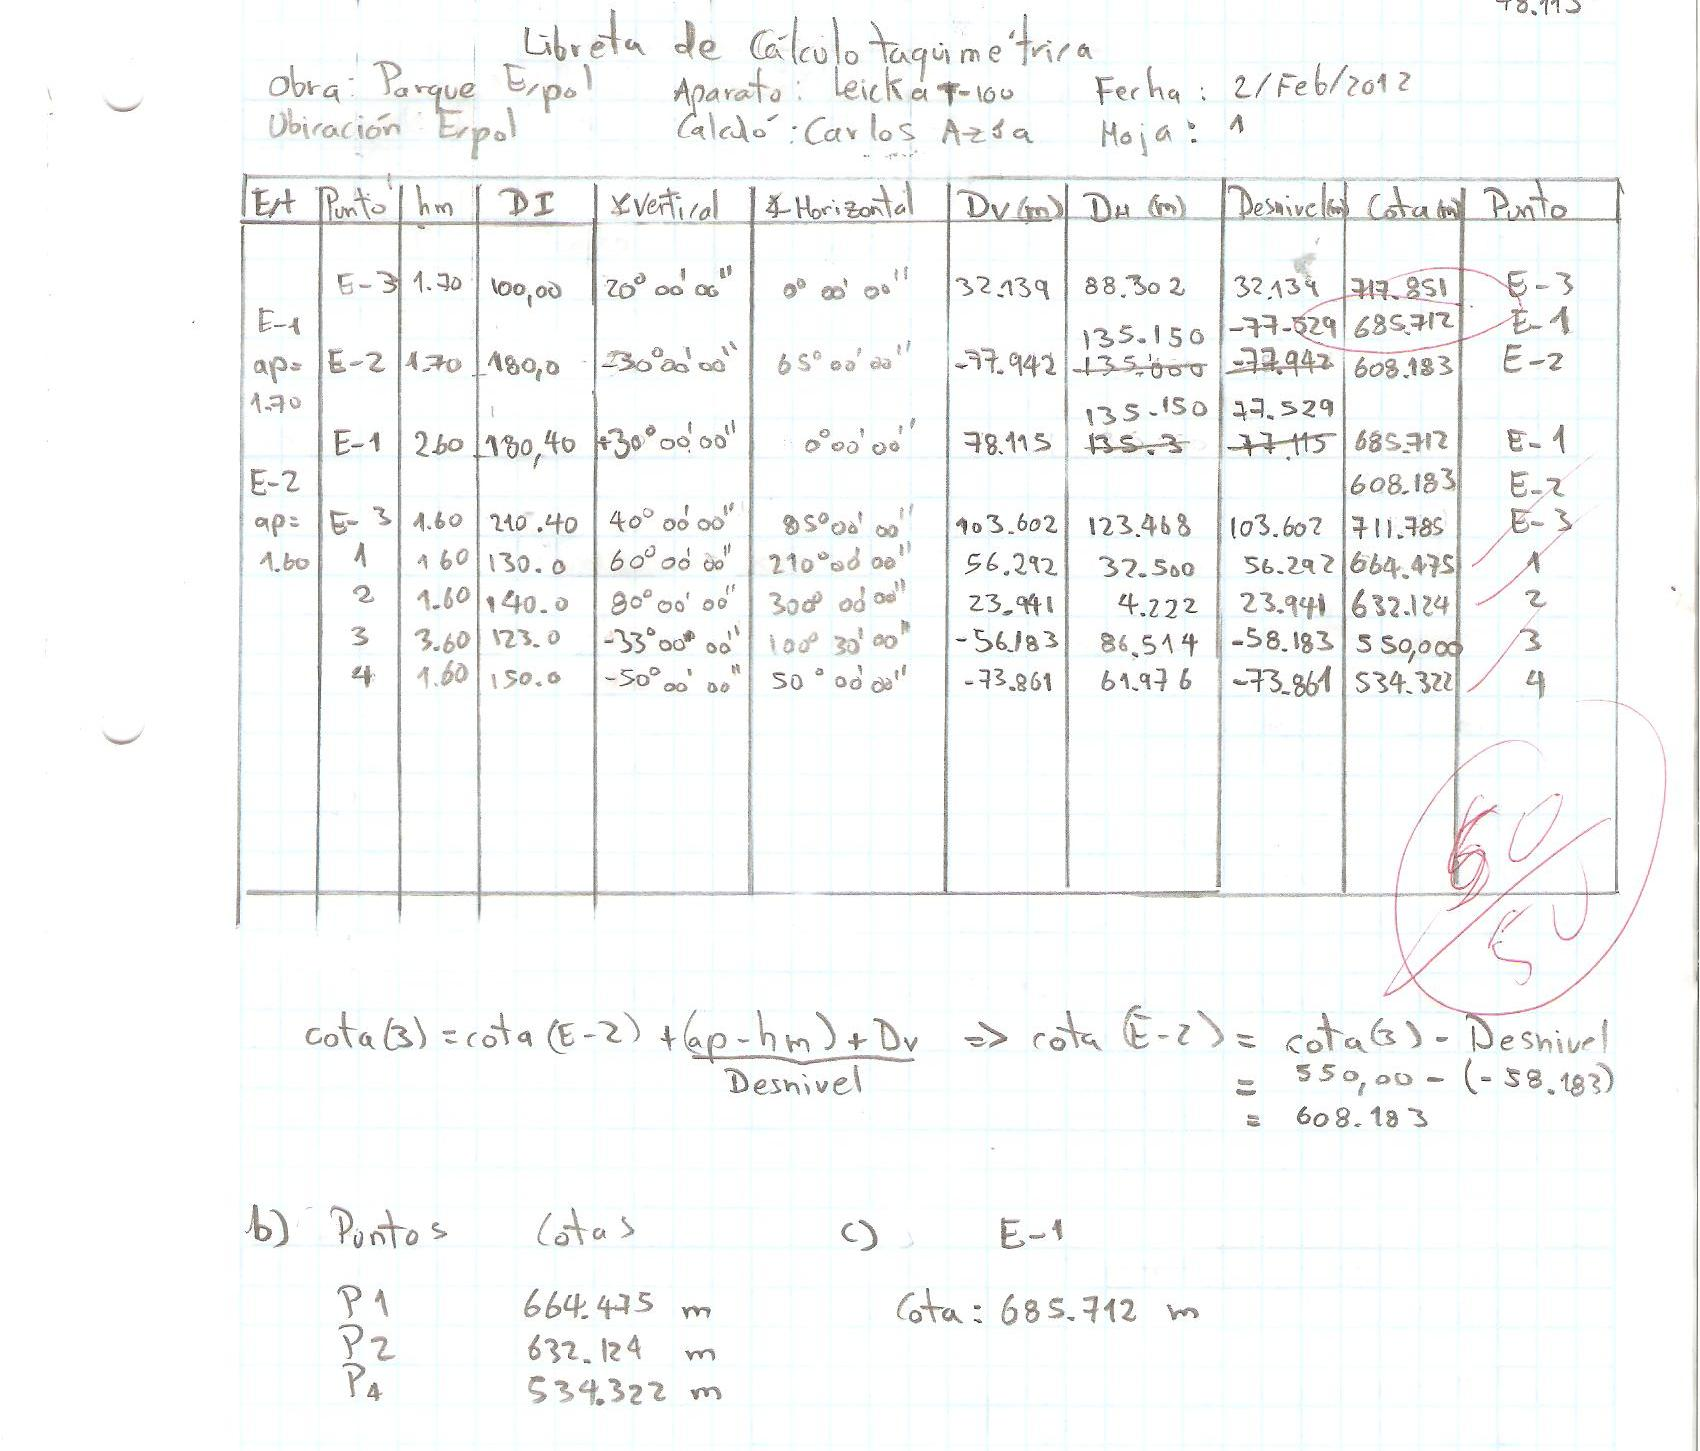 78.115
Libreta de Cálculo taquimétrica
Obra: Parque Erpol Aparato: Leicka T-100 Fecha: 2/Feb/2012
Ubicación: Erpol Calculó: Carlos Azúa Hoja: 1
Est Punto hm DI ∡Vertical ∡Horizontal Dv (m) DH (m) Desnivel(m) Cota (m) Punto
E-3 1.70 100,00 20°00'00" 0°00'00" 32.139 88.302 32.139 717.851 E-3
E-1 135.150 -77.529 685.712 E-1
ap= E-2 1.70 180,0 -30°00'00" 65°00'00" -77.942 135.000 -77.942 608.183 E-2
1.70 135.150 77.529
E-1 2.60 180,40 +30°00'00" 0°00'00" 78.115 135.3 77.115 685.712 E-1
E-2 608.183 E-2
ap= E-3 1.60 210.40 40°00'00" 85°00'00" 103.602 123.468 103.602 711.785 E-3
1.60 1 1.60 130.0 60°00'00" 210°00'00" 56.292 32.500 56.292 664.475 1
2 1.60 140.0 80°00'00" 300°00'00" 23.941 4.222 23.941 632.124 2
3 3.60 123.0 -33°00'00" 100°30'00" -56.183 86.514 -58.183 550,000 3
4 1.60 150.0 -50°00'00" 50°00'00" -73.861 61.976 -73.861 534.322 4
50
50
cota(3) = cota (E-2) + (ap-hm) + Dv => cota (E-2) = cota(3) - Desnivel
Desnivel = 550,00 - (-58.183)
= 608.183
b) Puntos Cotas c) E-1
P1 664.475 m Cota: 685.712 m
P2 632.124 m
P4 534.322 m